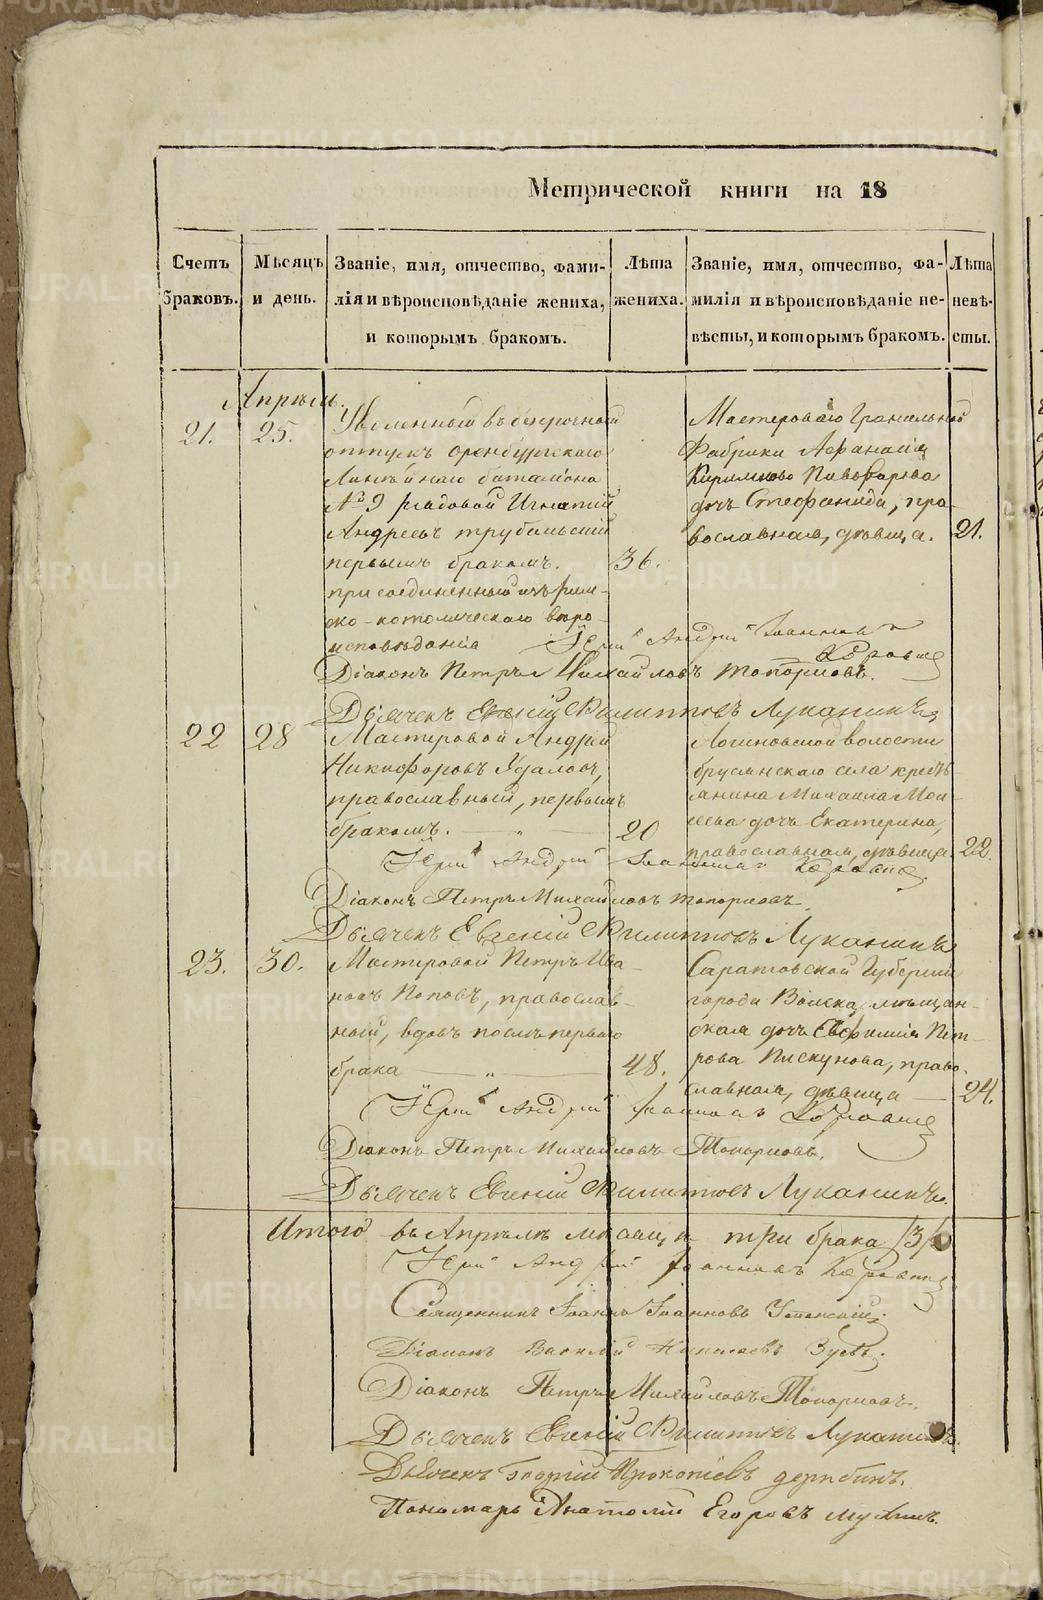 Метрической книги на 18
Счетъ браковъ.
Мѣсяцъ и день.
Званіе, имя, отчество, фами-
лія и вѣроисповѣданіе жениха,
и которымъ бракомъ.
Лѣта
жениха.
Званіе, имя, отчество, фа-
милія и вѣроисповѣданіе не-
вѣсты, и которымъ бракомъ.
Лѣта
невѣ-
сты.
Апрѣль.
21.
25.
Уволенный въ безсрочный
отпускъ оренбургскаго
Линѣйнаго баталіона
№ 9 рядовой Игнатій
Андреевъ
первымъ бракомъ.
присоединенный изъ рим-
ско-католическаго вѣро-
исповѣданія
36.
Мастероваго Гранильной
Фабрики Афанасія
Кирилова Пивоварова
дочь Стефанида, пра-
вославная, дѣвица.
21.
Іерей Андрей Іоанновъ
Діаконъ Петръ Михайловъ Топорковъ.
Дьячекъ Евгеній Филипповъ Луканинъ
22
28
Мастеровой Андрей
Никифоровъ Удаловъ,
православный, первымъ
бракомъ.
20
Логиновской волости
брусянскаго села кресть-
янина Михаила Мои-
сеева дочь Екатерина,
православная, дѣвица
22.
Іерей Андрей Іоанновъ
Діаконъ Петръ Михайловъ Топорковъ.
Дьячекъ Евгеній Филипповъ Луканинъ
23.
30.
Мастеровой Петръ Ива-
новъ Поповъ, православ-
ный, вдовъ послѣ перваго
брака
48.
Саратовской Губерніи
города Волска, мѣщан-
ская дочь Евфимія Пет-
рова Пискунова, право-
славная, дѣвица
24.
Іерей Андрей Іоанновъ
Діаконъ Петръ Михайловъ Топорковъ.
Дьячекъ Евгеній Филипповъ Луканинъ.
Итого въ Апрѣлѣ мѣсяцѣ три брака /3/
Іерей Андрей Іоанновъ
Священникъ Іоаннъ Іоанновъ Успенскій
Діаконъ Василій Николаевъ Зуевъ.
Діаконъ Петръ Михайловъ Топорковъ.
Дьячекъ Евгеній Филипповъ Луканинъ.
Дьячекъ Георгій Прокопіевъ дерябинъ.
Пономарь Анатолій Егоровъ
METRIKI.GASO-URAL.RU